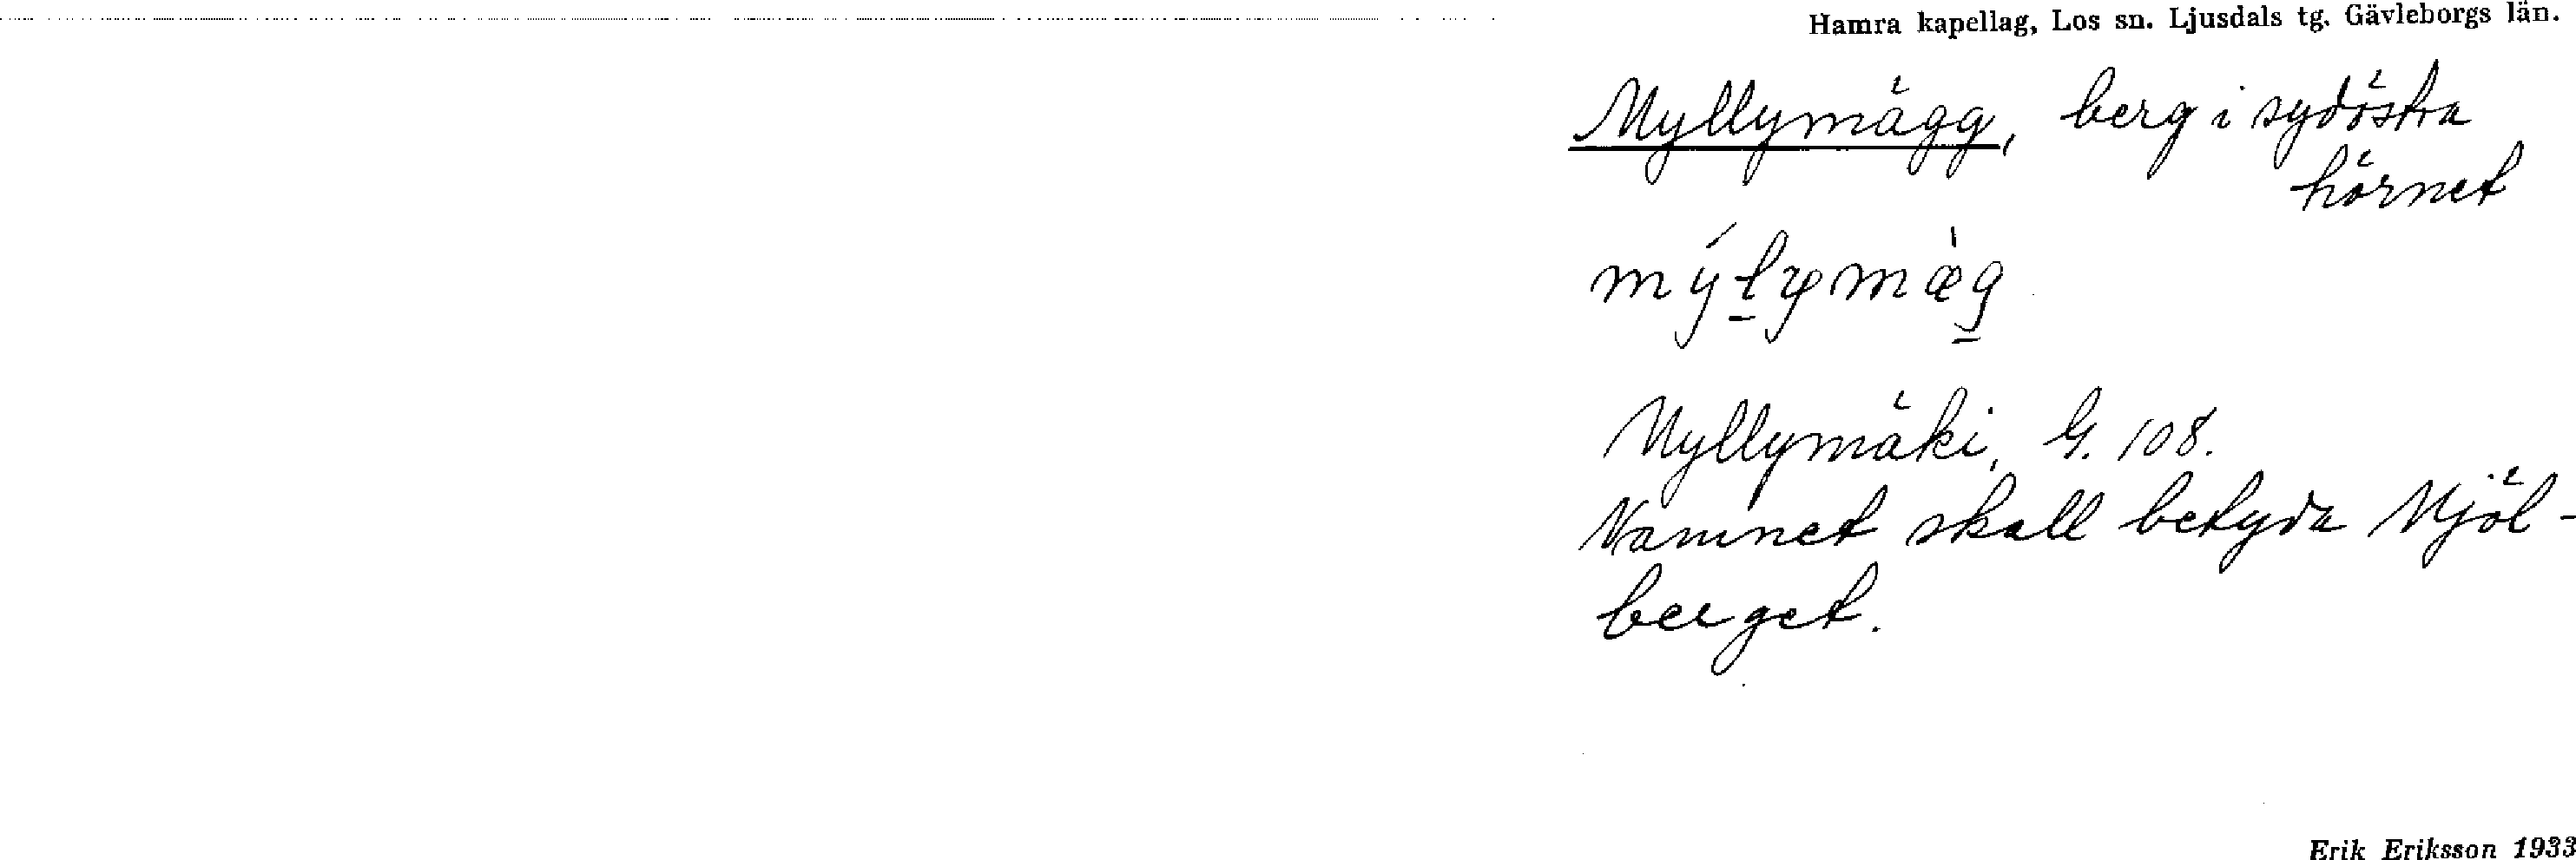 Hamra kapellag, Los sn. Ljusdals tg. Gävleborgs län.
Myllymägg, berg i sydöstra
hörnet
Myllymäki, G. 108.
Namnet skall betyda Mjöl-
berget.
Erik Eriksson 1933